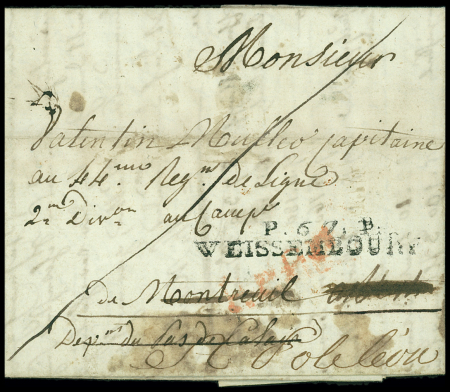 Monsieur
Valentin Muller capitaine
au 44.me Regm.t De Ligne
2.me Div.on au Camp
P. 67. P.
WEISSEMBOURG
de Montreuil
Dep.mt du Pas de Calais